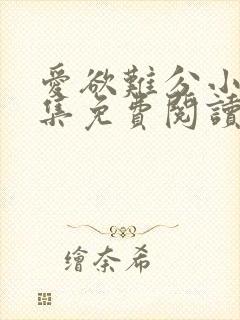 愛欲難分小
集免費閱讀
繪奈希